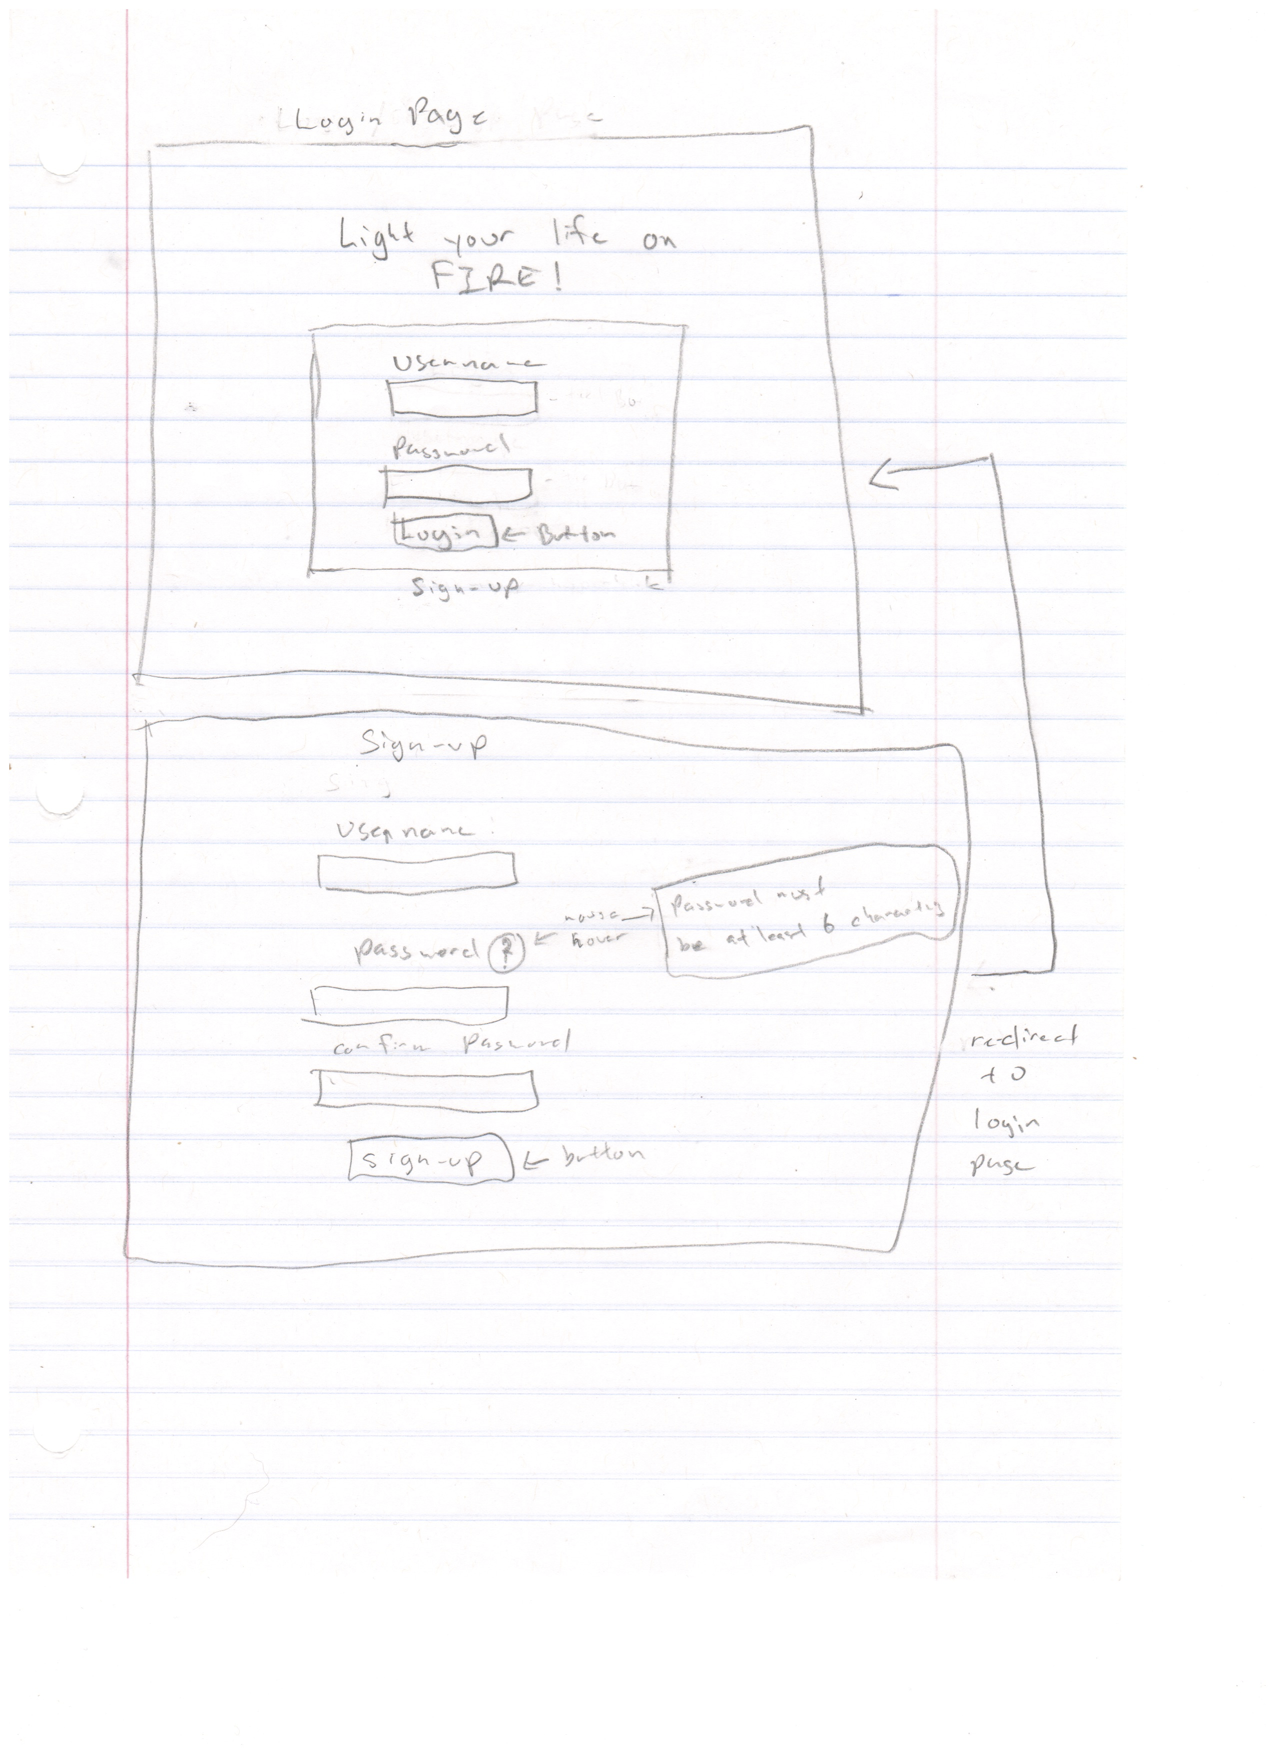 Login Page
Light your life on
FIRE!
Username
Password
Login ← Button
Sign-up
Sign-up
Username
password ? ← mouse hover →
Password must
be at least 6 characters
confirm Password
sign-up ← button
re-direct
to
login
page